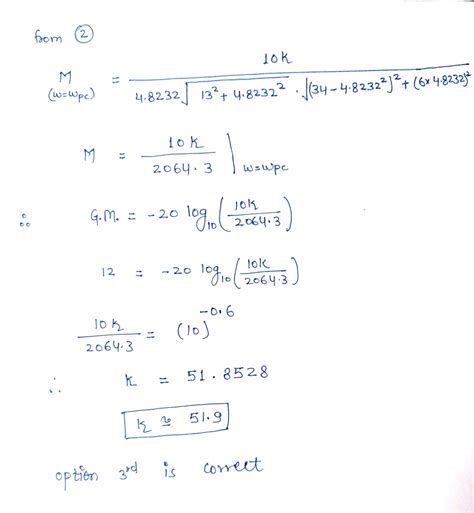 from ②
M (ω=ωpc) = 10k / 4.8232 √(13² + 4.8232²) · √((34 − 4.8232²)² + (6×4.8232)²)
M = 10k / 2064.3 | ω=ωpc
∴ G.M. = −20 log₁₀ (10k / 2064.3)
12 = −20 log₁₀ (10k / 2064.3)
10k / 2064.3 = (10)^−0.6
∴ k = 51.8528
k ≈ 51.9
option 3rd is correct